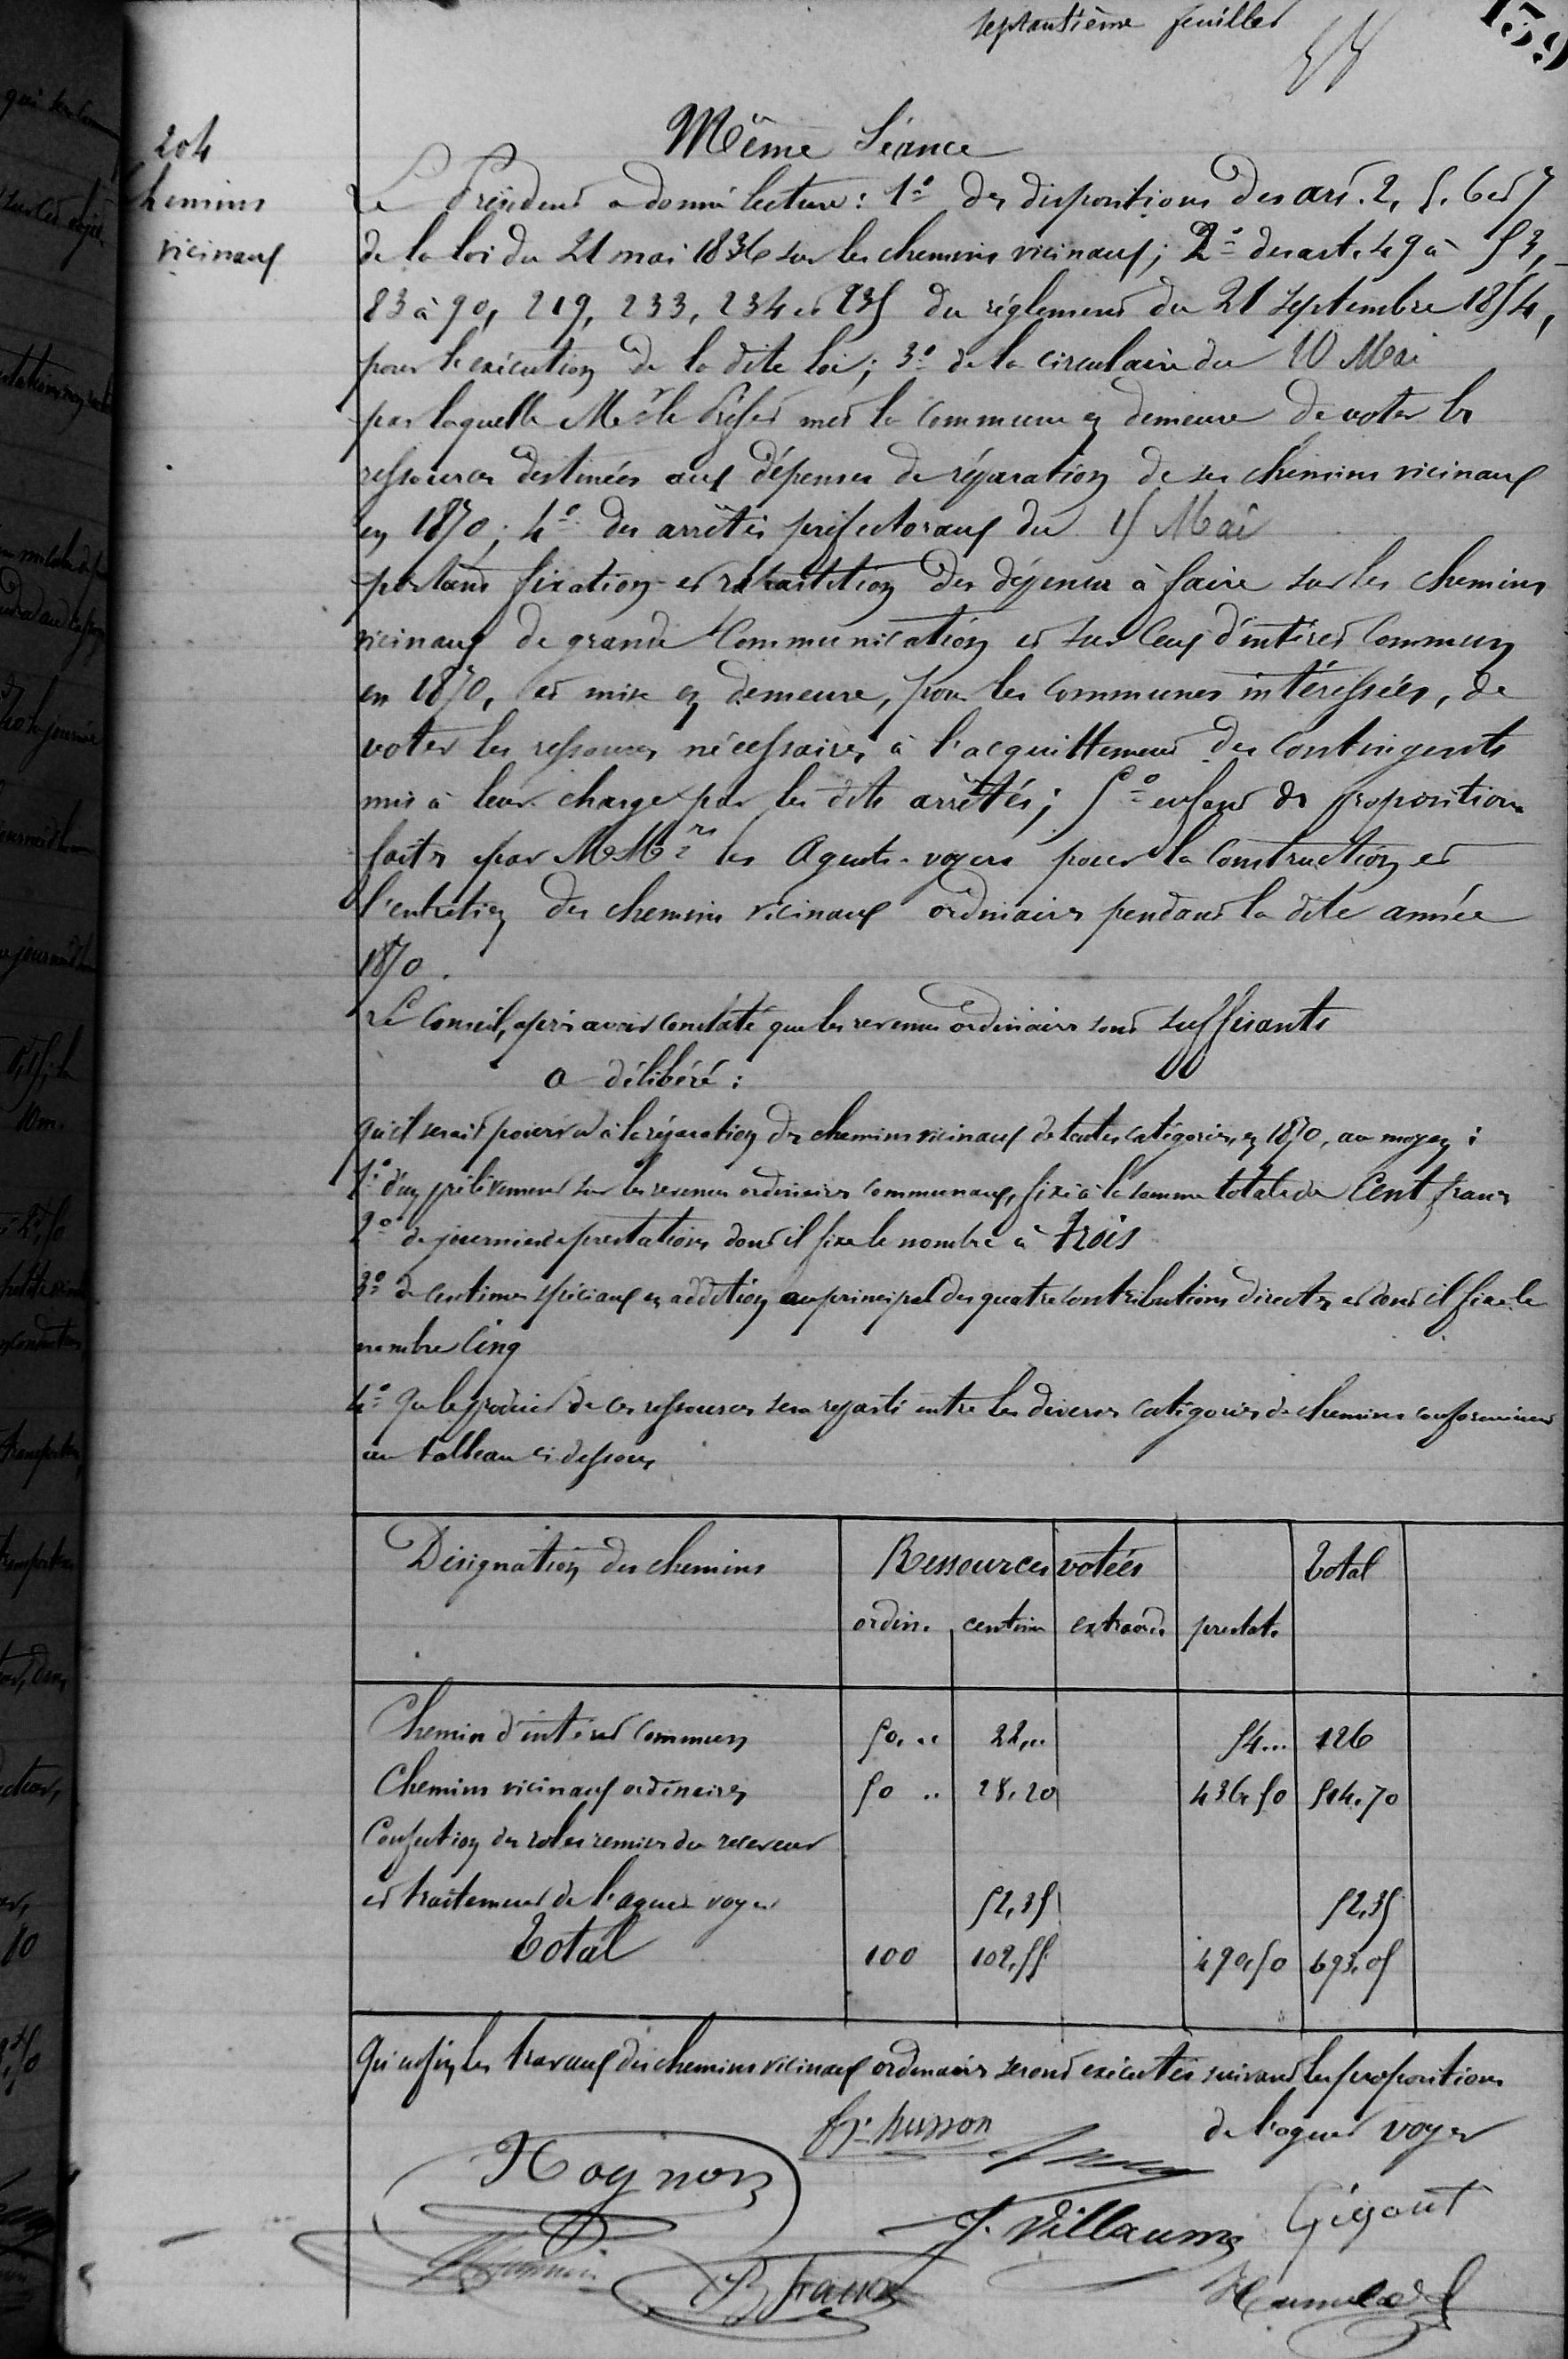 septantième feuillet
159
204
chemins
vicinaux
Même Séance
Le Président a donné lecture: 1º des dispositions des art. 2, 5, 6 et 7
de la loi du 21 mai 1836 sur les chemins vicinaux; 2º des art. 49 à 53,
83 à 90, 219, 233, 234 et 235 du réglement du 21 septembre 1854,
pour l'exécution de la dite loi; 3º de la circulaire du 10 Mai
par laquelle Mr le Préfet met la commune en demeure de voter les
ressources destinées aux dépenses de réparation de ses chemins vicinaux
en 1870; 4º des arrêtés préfectoraux du 15 Mai
portant fixation et répartition des dépenses à faire sur les chemins
vicinaux de grande communication et sur ceux d'intérêt commun
en 1870, et mise en demeure, pour les communes intéressées, de
voter les ressources nécessaires à l'acquittement des contingents
mis à leur charge par les dits arrêtés; 5º enfin des propositions
faites par MMrs les Agents-voyers pour la construction et
l'entretien des chemins vicinaux ordinaires pendant la dite année
1870.
Le Conseil, après avoir constaté que les revenus ordinaires sont suffisants
a délibéré:
qu'il serait pourvu à la réparation des chemins vicinaux de toutes catégories, en 1870, au moyen:
1º d'un prélèvement sur les revenus ordinaires communaux, fixé à la somme totale de Cent francs
2º de journées de prestations dont il fixe le nombre à trois
3º de centimes spéciaux en addition au principal des quatre contributions directes et dont il fixe le
nombre cinq
4º que le produit de ces ressources sera reparti entre les diverses catégories de chemins conformément
au tableau ci dessous
Désignation des chemins Ressources votées Total
ordin. centim extraord. prestat.
Chemin d'intérêt commun 50,.. 22,.. 54... 126
Chemins vicinaux ordinaires 50 .. 28,20 436,50 514,70
Confection des roles remises du receveur
et traitement de l'agent voyer 52,35 52,35
Total 100 102,55 490,50 693,05
Qu'enfin, les travaux des chemins vicinaux ordinaires seront exécutés suivant les propositions
de l'agent voyer
husson
Hognon
J. Villaume
Gégout